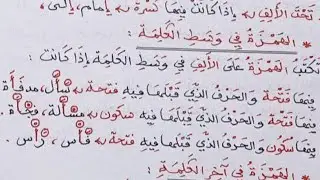 تَحْتَ الأَلِفِ ← إِذَا كَانَتْ فِيهَا كَسْرَة ← إِمَام، إِلَى،
* الهَمْزَةُ فِي وَسَطِ الكَلِمَةِ :
تُكْتَبُ الهَمْزَةُ عَلَى الأَلِفِ فِي وَسَطِ الكَلِمَةِ إِذَا كَانَتْ :
فِيهَا فَتْحَة وَالحَرْفُ الَّذِي قَبْلَهَا فِيهِ فَتْحَة ← سَأَلَ، مِدْفَأَة
فِيهَا فَتْحَة وَالحَرْفُ الَّذِي قَبْلَهَا فِيهِ سُكُون ← مَسْأَلَة، فَجْأَة
فِيهَا سُكُون وَالحَرْفُ الَّذِي قَبْلَهَا فِيهِ فَتْحَة ← فَأْس، رَأْس .
* الهَمْزَةُ فِي آخِرِ الكَلِمَةِ :